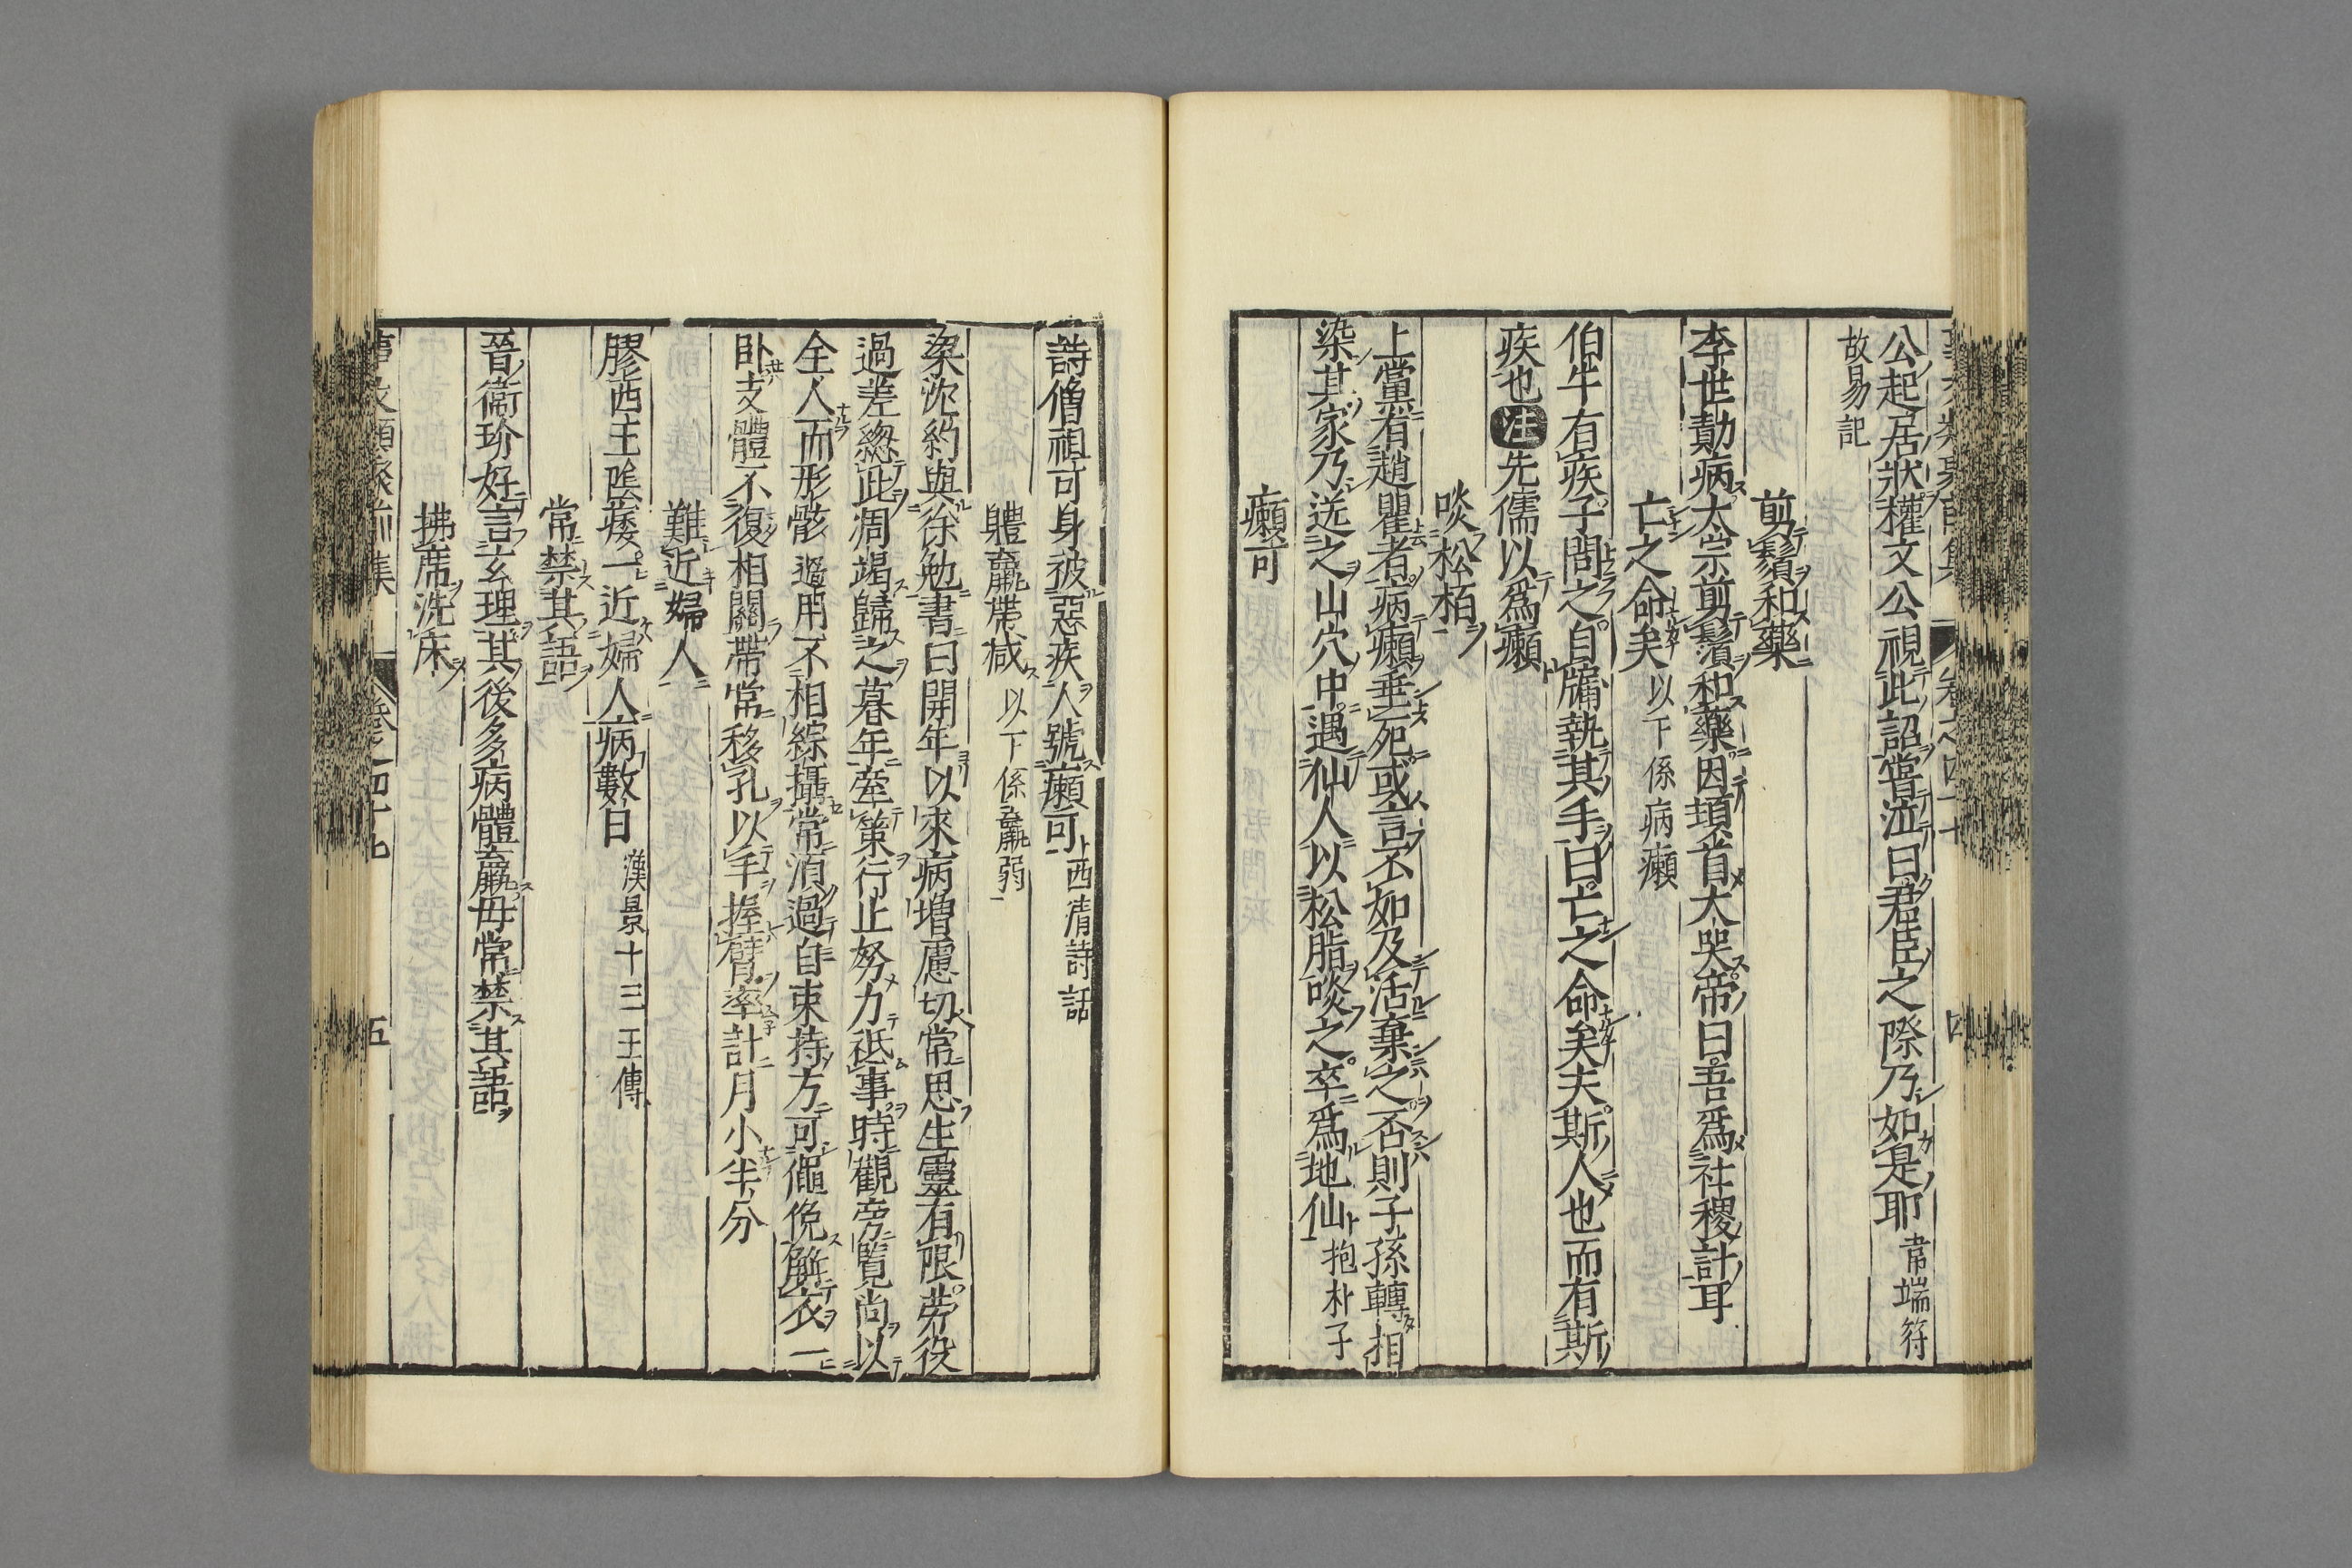 公起居狀權文公視此詔嘗泣曰君臣之際乃如是耶韋端符
故易記
剪鬚和藥
李世勣病太宗剪鬚和藥因頓首大哭帝曰吾爲社稷計耳
亡之命矣以下係病癩
伯牛有疾子問之自牖執其手曰亡之命矣夫斯人也而有斯
疾也注先儒以爲癩
啖松栢
上黨有趙瞿者病癩垂死或言不如及活棄之否則子孫轉相
染其家乃送之山穴中遇仙人以松脂啖之卒爲地仙抱朴子
癩可
詩僧祖可身被惡疾人號癩可西清詩話
體羸帶減以下係羸弱
梁沈約與徐勉書曰開年以來病增慮切常思生靈有限労役
過差緫此凋竭歸之暮年牽策行止努力祗事時觀旁覽尚以
全人而形骸遒用不相綜攝常湏過自束持方可僶俛解衣一
卧支體不復相關帶常移孔以手握臂率計月小半分
難近婦人
膠西王陰痿一近婦人病數日漢景十三王傳
常禁其語
晉衞玠好言玄理其後多病體羸母常禁其語
拂席洗床
卷之四十七
五